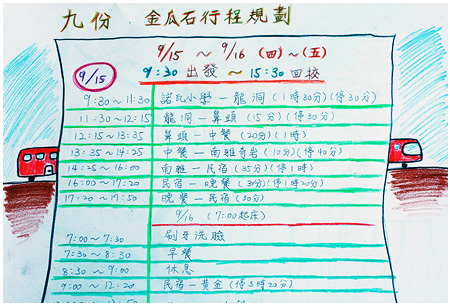 九份 金瓜石行程規劃
9/15 ～ 9/16 (四)～(五)
9:30 出發 ～ 15:30 回校
9/15
9:30～11:30 諾瓦小學－龍洞(1時30分)(停30分)
11:30～12:15 龍洞－鼻頭(15分)(停30分)
12:15～13:35 鼻頭－中餐(20分)(1時)
13:35～14:25 中餐－南雅奇岩(10分)(停40分)
14:25～16:00 南雅－民宿(35分)(停1時)
16:00～17:20 民宿－晚餐(30分)(停1時20分)
17:20～17:50 晚餐－民宿(30分)
9/16 (7:00起床)
7:00～7:30 刷牙洗臉
7:30～8:30 早餐
8:30～9:00 休息
9:00～12:20 民宿－黃金(停3時20分)